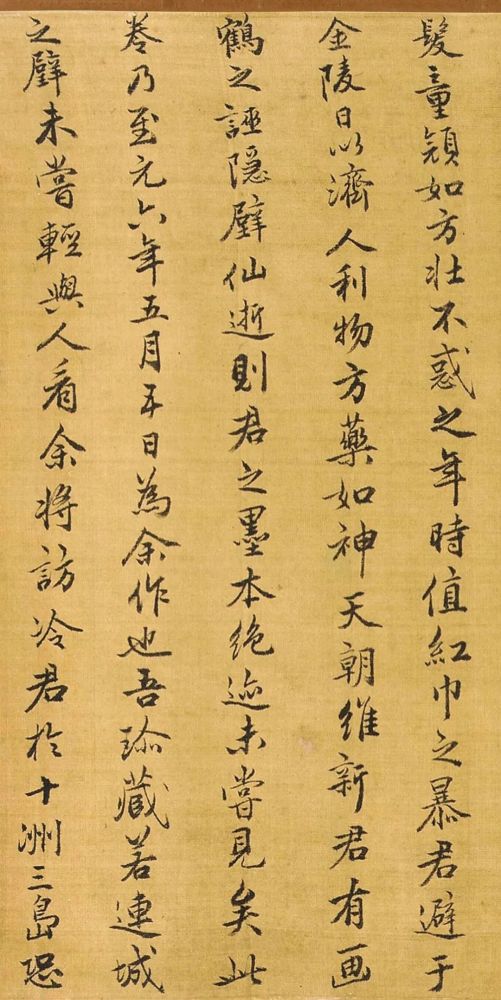 髮童顔如方壯不惑之年時值紅巾之暴君避于
金陵日以濟人利物方藥如神天朝維新君有画
鶴之誣隠壁仙逝則君之墨本絶迹未嘗見矣此
卷乃至元六年五月五日為余作也吾珎藏若連城
之璧未嘗輕與人看余将訪冷君於十洲三島恐